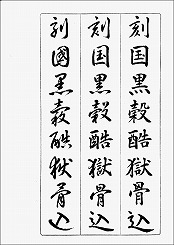 刻国黒穀酷獄骨込
刻国黒穀酷獄骨込
刻國黒穀酷獄骨込